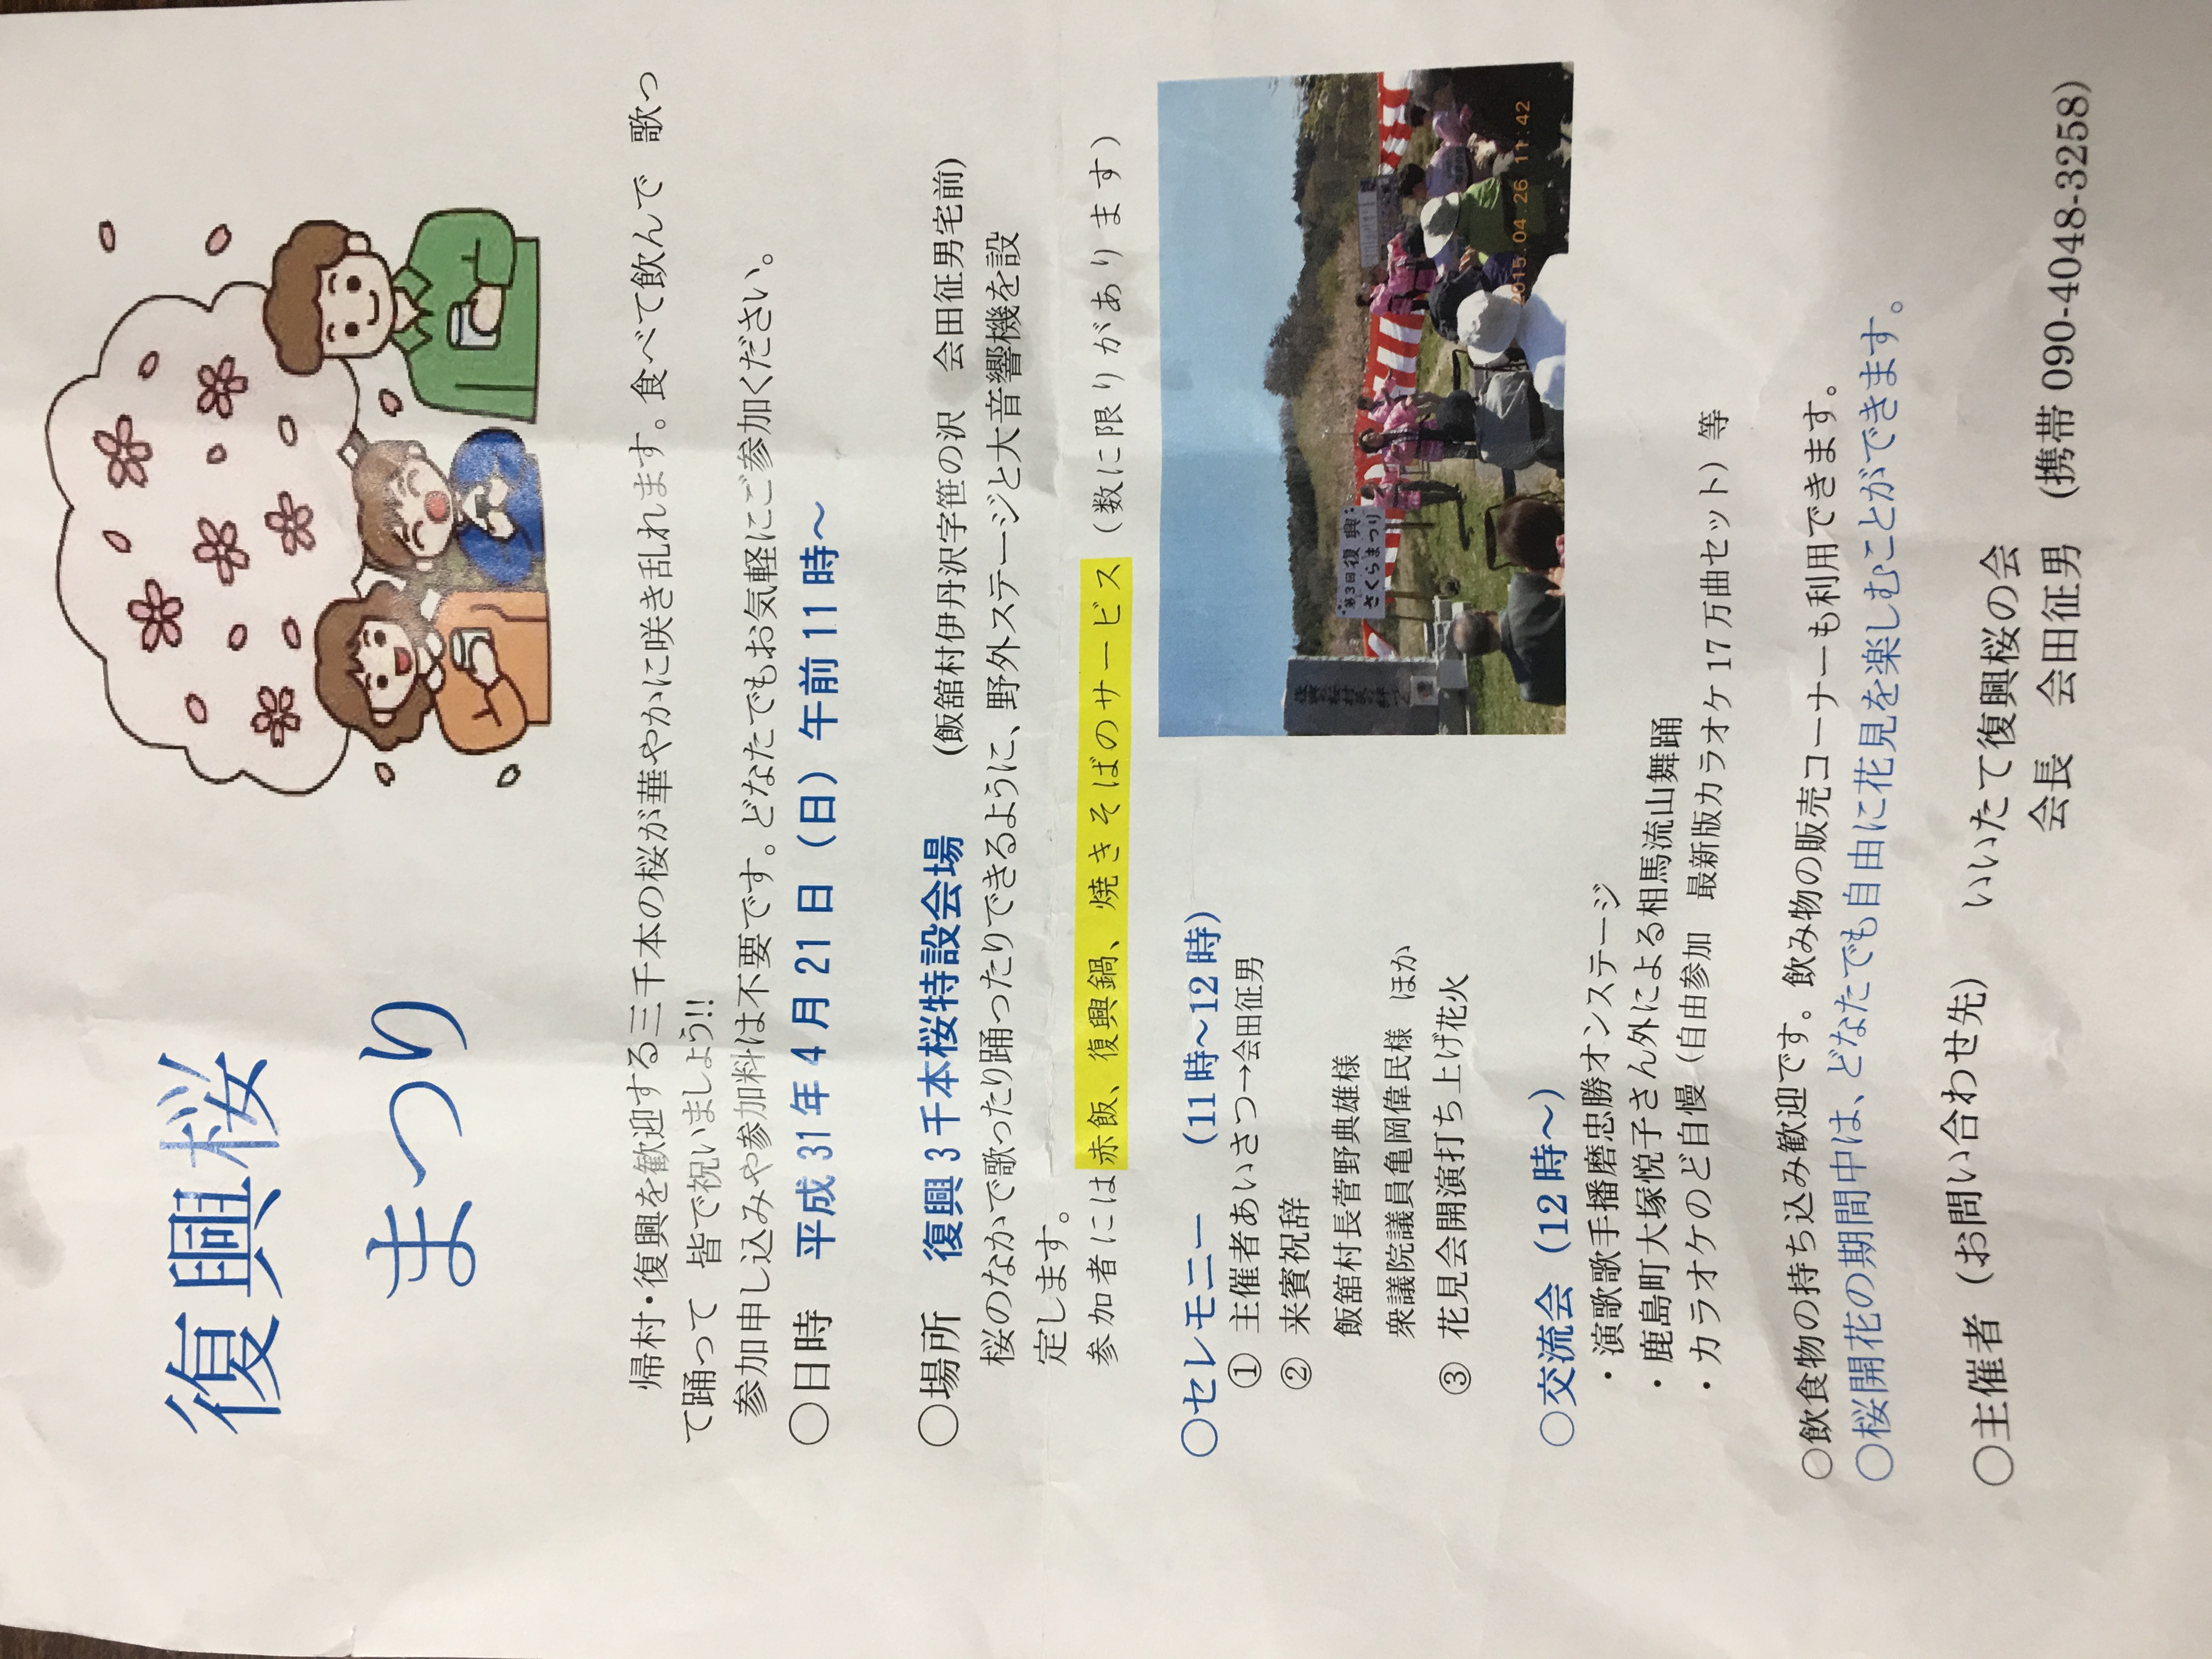 復興桜
まつり
帰村・復興を歓迎する三千本の桜が華やかに咲き乱れます。食べて飲んで 歌っ
て踊って 皆で祝いましょう!!
参加申し込みや参加料は不要です。どなたでもお気軽にご参加ください。
○日時 平成31年4月21日（日）午前11時～
○場所 復興3千本桜特設会場 (飯舘村伊丹沢字笹の沢 会田征男宅前)
桜のなかで歌ったり踊ったりできるように、野外ステージと大音響機を設
定します。
参加者には赤飯、復興鍋、焼きそばのサービス（数に限りがあります）
○セレモニー （11時～12時）
① 主催者あいさつ→会田征男
② 来賓祝辞
飯舘村長菅野典雄様
衆議院議員亀岡偉民様 ほか
③ 花見会開演打ち上げ花火
第3回復興
さくらまつり
2015.04 26 11:42
○交流会（12時～）
・演歌歌手播磨忠勝オンステージ
・鹿島町大塚悦子さん外による相馬流山舞踊
・カラオケのど自慢（自由参加 最新版カラオケ17万曲セット）等
○飲食物の持ち込み歓迎です。飲み物の販売コーナーも利用できます。
○桜開花の期間中は、どなたでも自由に花見を楽しむことができます。
○主催者（お問い合わせ先） いいたて復興桜の会
会長 会田征男 (携帯 090-4048-3258)